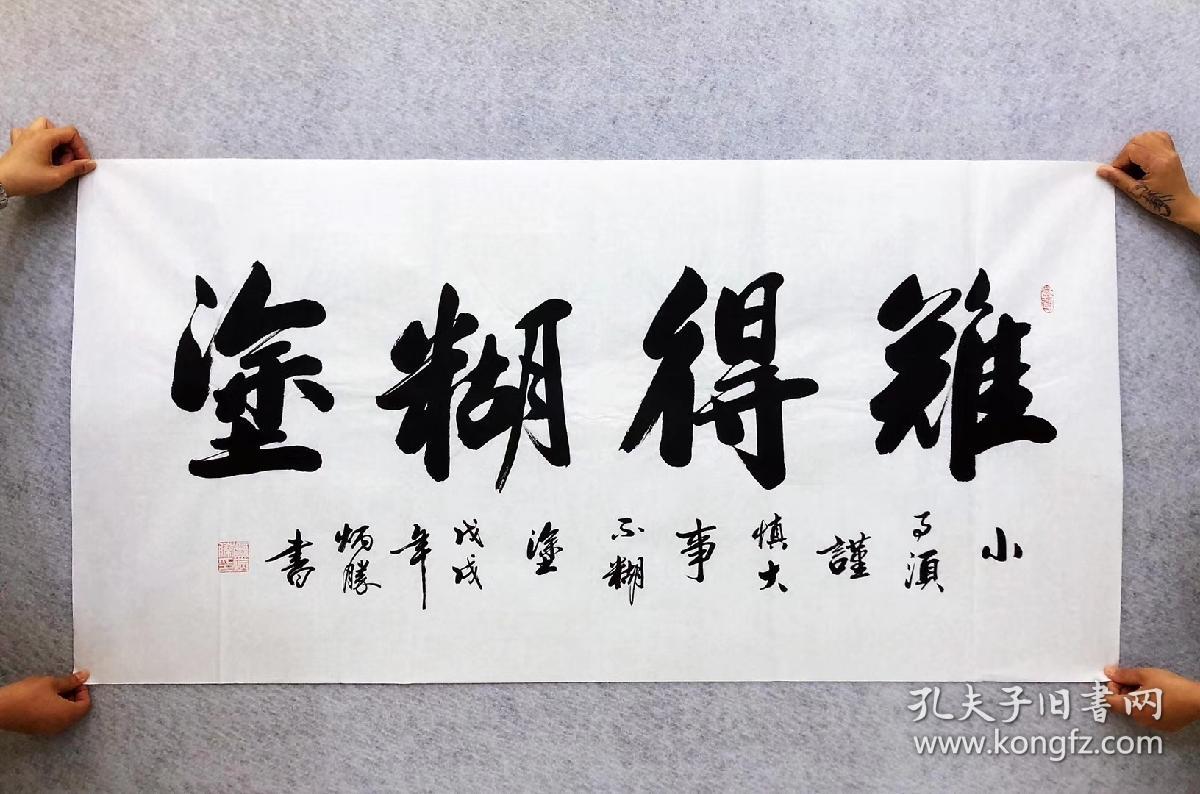 難得糊塗
小事須謹慎大事不糊塗戊戌年炳勝書
孔夫子旧书网
www.kongfz.com